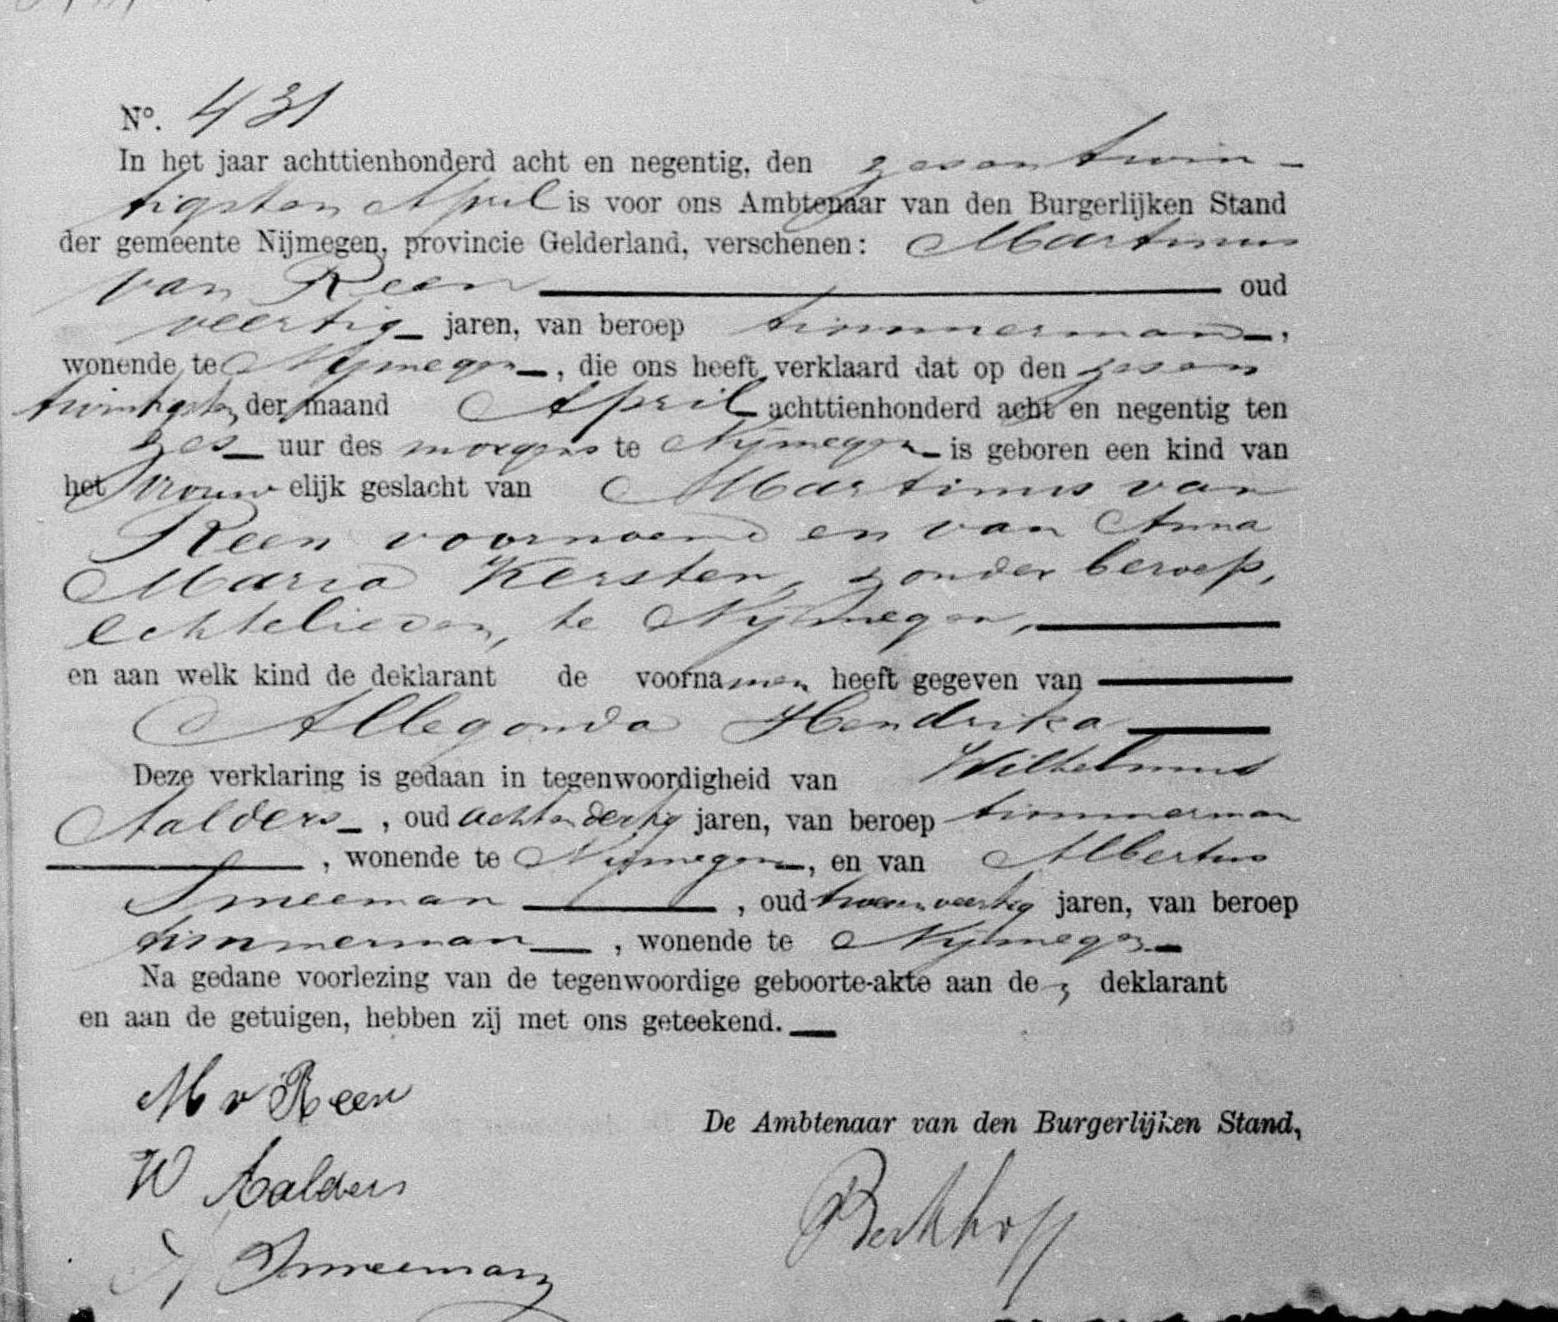 N°. 431
In het jaar achttienhonderd acht en negentig, den zesentwin-
tigsten April is voor ons Ambtenaar van den Burgerlijken Stand
der gemeente Nijmegen, provincie Gelderland, verschenen: Martinus
van Reen oud
veertig jaren, van beroep timmerman,
wonende te Nijmegen, die ons heeft verklaard dat op den zesen
twintigsten der maand April achttienhonderd acht en negentig ten
zes uur des morgens te Nijmegen is geboren een kind van
het vrouwelijk geslacht van Martinus van
Reen voornoemd en van Anna
Maria Kersten, zonder beroep,
echtelieden, te Nijmegen,
en aan welk kind de deklarant de voornamen heeft gegeven van
Allegonda Hendrika
Deze verklaring is gedaan in tegenwoordigheid van Wilhelmus
Aalders, oud achtendertig jaren, van beroep timmerman
, wonende te Nijmegen, en van Albertus
Smeeman, oud tweeenveertig jaren, van beroep
timmerman, wonende te Nijmegen
Na gedane voorlezing van de tegenwoordige geboorte-akte aan de deklarant
en aan de getuigen, hebben zij met ons geteekend.
M v Reen
De Ambtenaar van den Burgerlijken Stand,
W Aalders
Berkhoff
A Smeeman